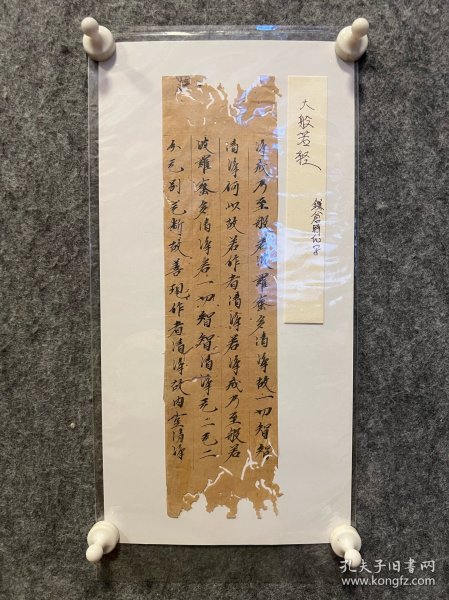 大般若経
鎌倉時代写
淨戒乃至般若波羅蜜多清淨故一切智智
清淨何以故若作者清淨若淨戒乃至般若
波羅蜜多清淨若一切智智清淨无二无二
分无別无斷故善現作者清淨故内空清淨
孔夫子旧书网
www.kongfz.com